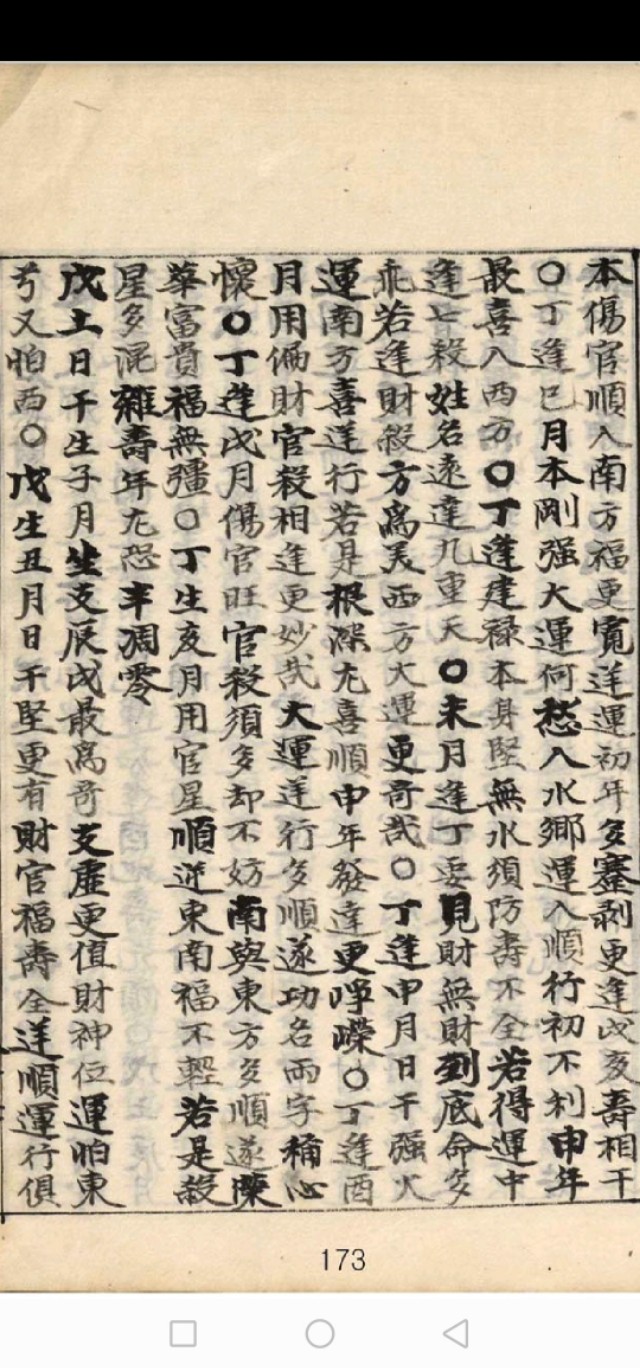 本傷官順入南方福更寬逆運初年多蹇剥更逢戊亥壽相干
○丁逢巳月本剛强大運何愁入水鄉運入順行初不利申年
最喜入西方○丁逢建祿本身堅無水須防壽不全若得運中
逢七殺姓名遠達九重天○未月逢丁要見財無財到底命多
乖若逢財殺方爲美西方大運更奇哉○丁逢申月日干强火
運南方喜逆行若是根深尢喜順申年發達更崢嶸○丁逢酉
月用偏財官殺相逢更妙哉大運逆行多順遂功名兩字稱心
懷○丁逢戊月傷官旺官殺須多却不妨南與東方多順遂榮
華富貴福無彊○丁生亥月用官星順逆東南福不輕若是殺
星多混雜壽年尢恐半凋零
戊土日干生子月坐支辰戊最爲奇支虛更值財神位運怕東
兮又怕西○戊生丑月日干堅更有財官福壽全逆順運行俱
173